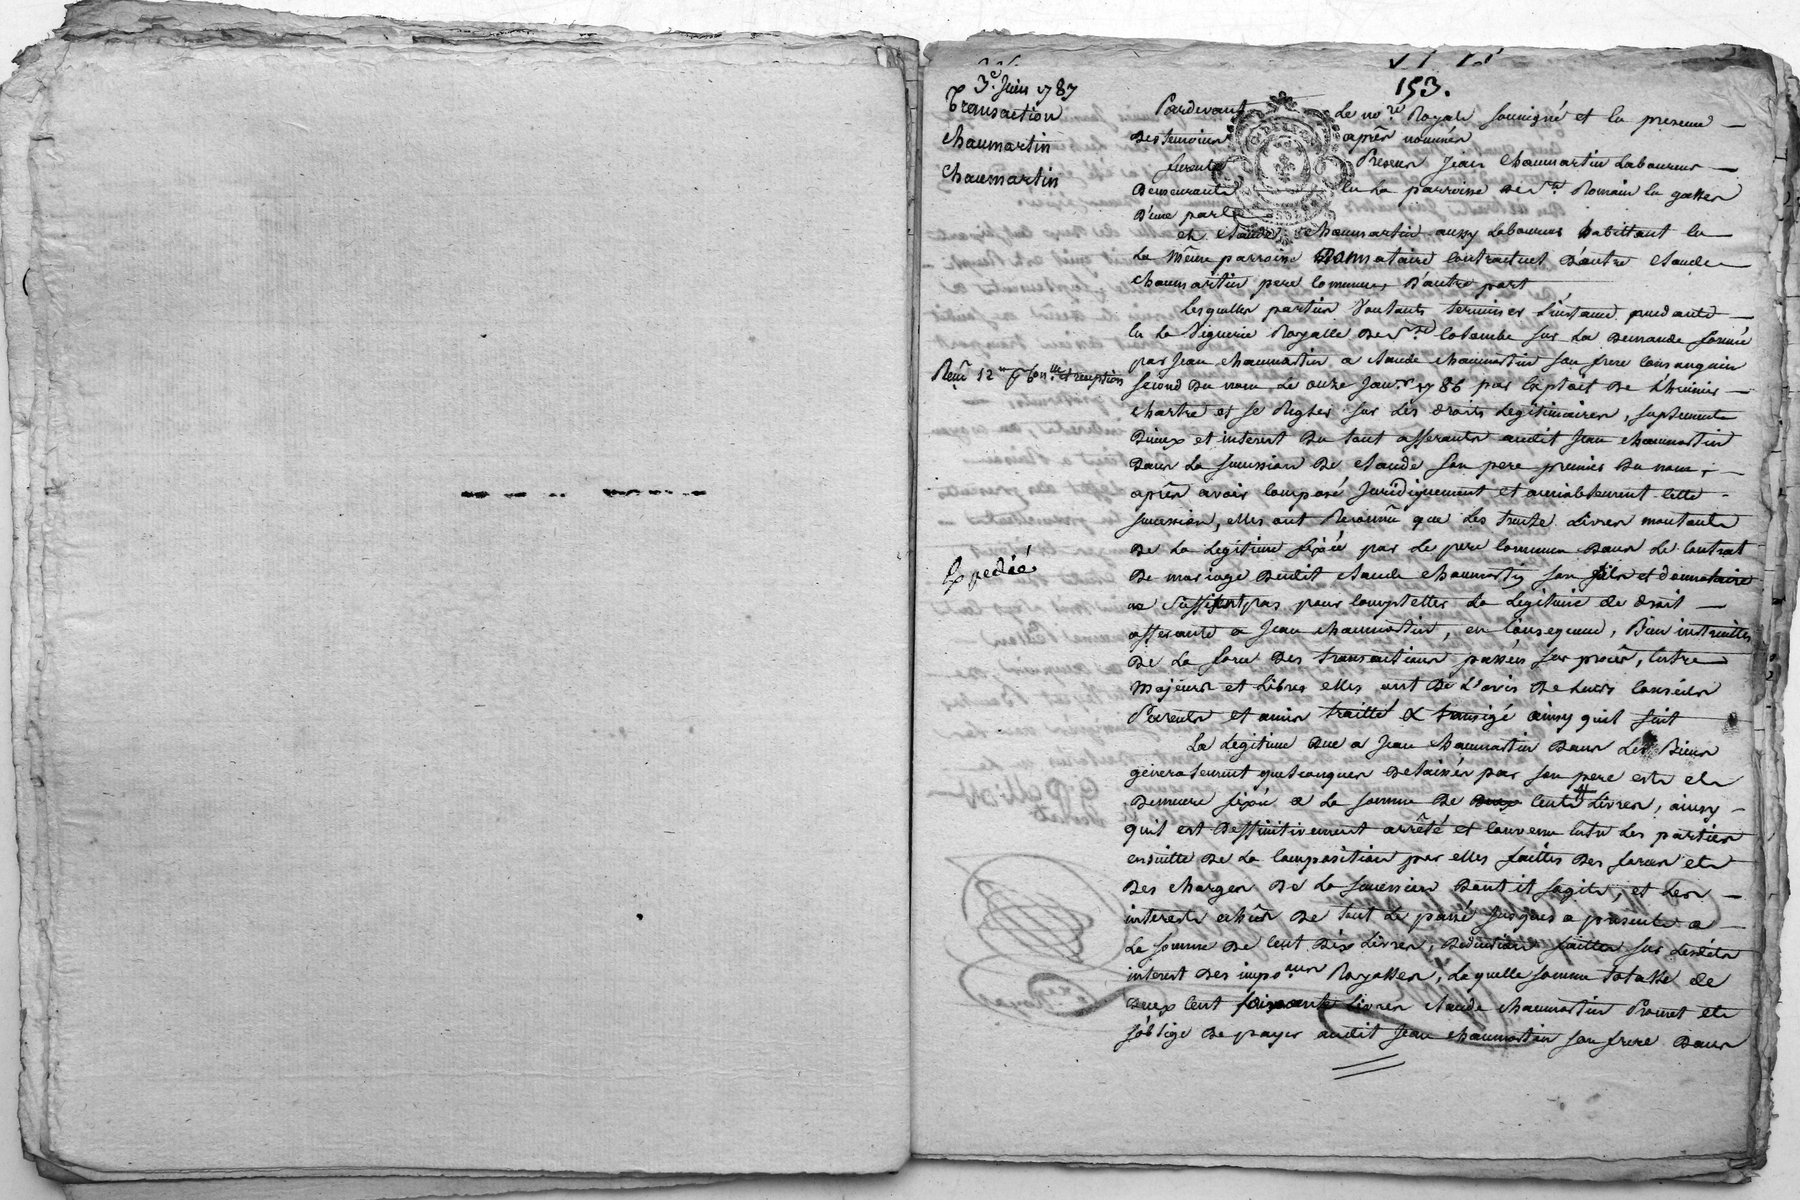 153.
3e Juin 1787
Transaction
chaumartin
chaumartin
Pardevant le nore Royal soussigné et en presence
Des temoins après nommés
furent Presens Jean chaumartin Laboureur
Demeurant en la parroisse de St Romain la
D'une part
et claude chaumartin aussy Laboureur habittant en
La même parroisse Donnataire contractuel d'autre claude
chaumartin pere commun, D'autre part
Lesquelles parties voulants terminer l'instance pendante
en la viguerie Royalle de Ste Colombe sur La Demande formée
par Jean chaumartin a claude chaumartin son frere consanguin
second du nom Le onze Janvr 1786 par Exploit de
chartre et se Regler sur Les droits Legitimaires, suplement
Dieux et interest du tout afferants audit Jean chaumartin
Dans La succession de claude son pere premier du nom,
après avoir composé Juridiquement et amiablement cette
succession, elles ont Reconnû que Les trente Livres montant
De La Legitime fixée par Le pere commun dans Le contrat
De mariage dudit claude chaumartin son fils et donnataire
ne suffisent pas pour completter La Legitime de droit
afferante a Jean chaumartin, en consequence, Bien instruittes
De La force des transactions passées sur procès, entre
Majeurs et Libres elles ont de L'avis de Leurs conseils
Parents et amis traitté & transigé ainsy quil suit
La Legitime due a Jean chaumartin dans Les Biens
generalement quelconques delaissés par son pere est et
Demeure fixée a La somme de deux cents Livres, ainsy
quil est deffinitivement arrêté et convenu entre Les parties
ensuitte de La composition par elles faittes des forces et
Des charges de La succession dont il sagit, et Les
interests echûs de tout Le passé jusques a present a
La somme de cent dix Livres, deduction faitte sur Lesdits
interest des imposons Royalles, Laquelle somme totalle de
deux cent soixante Livres claude chaumartin Promet et
s'oblige de payer audit Jean chaumartin son frere Dans
Expedié